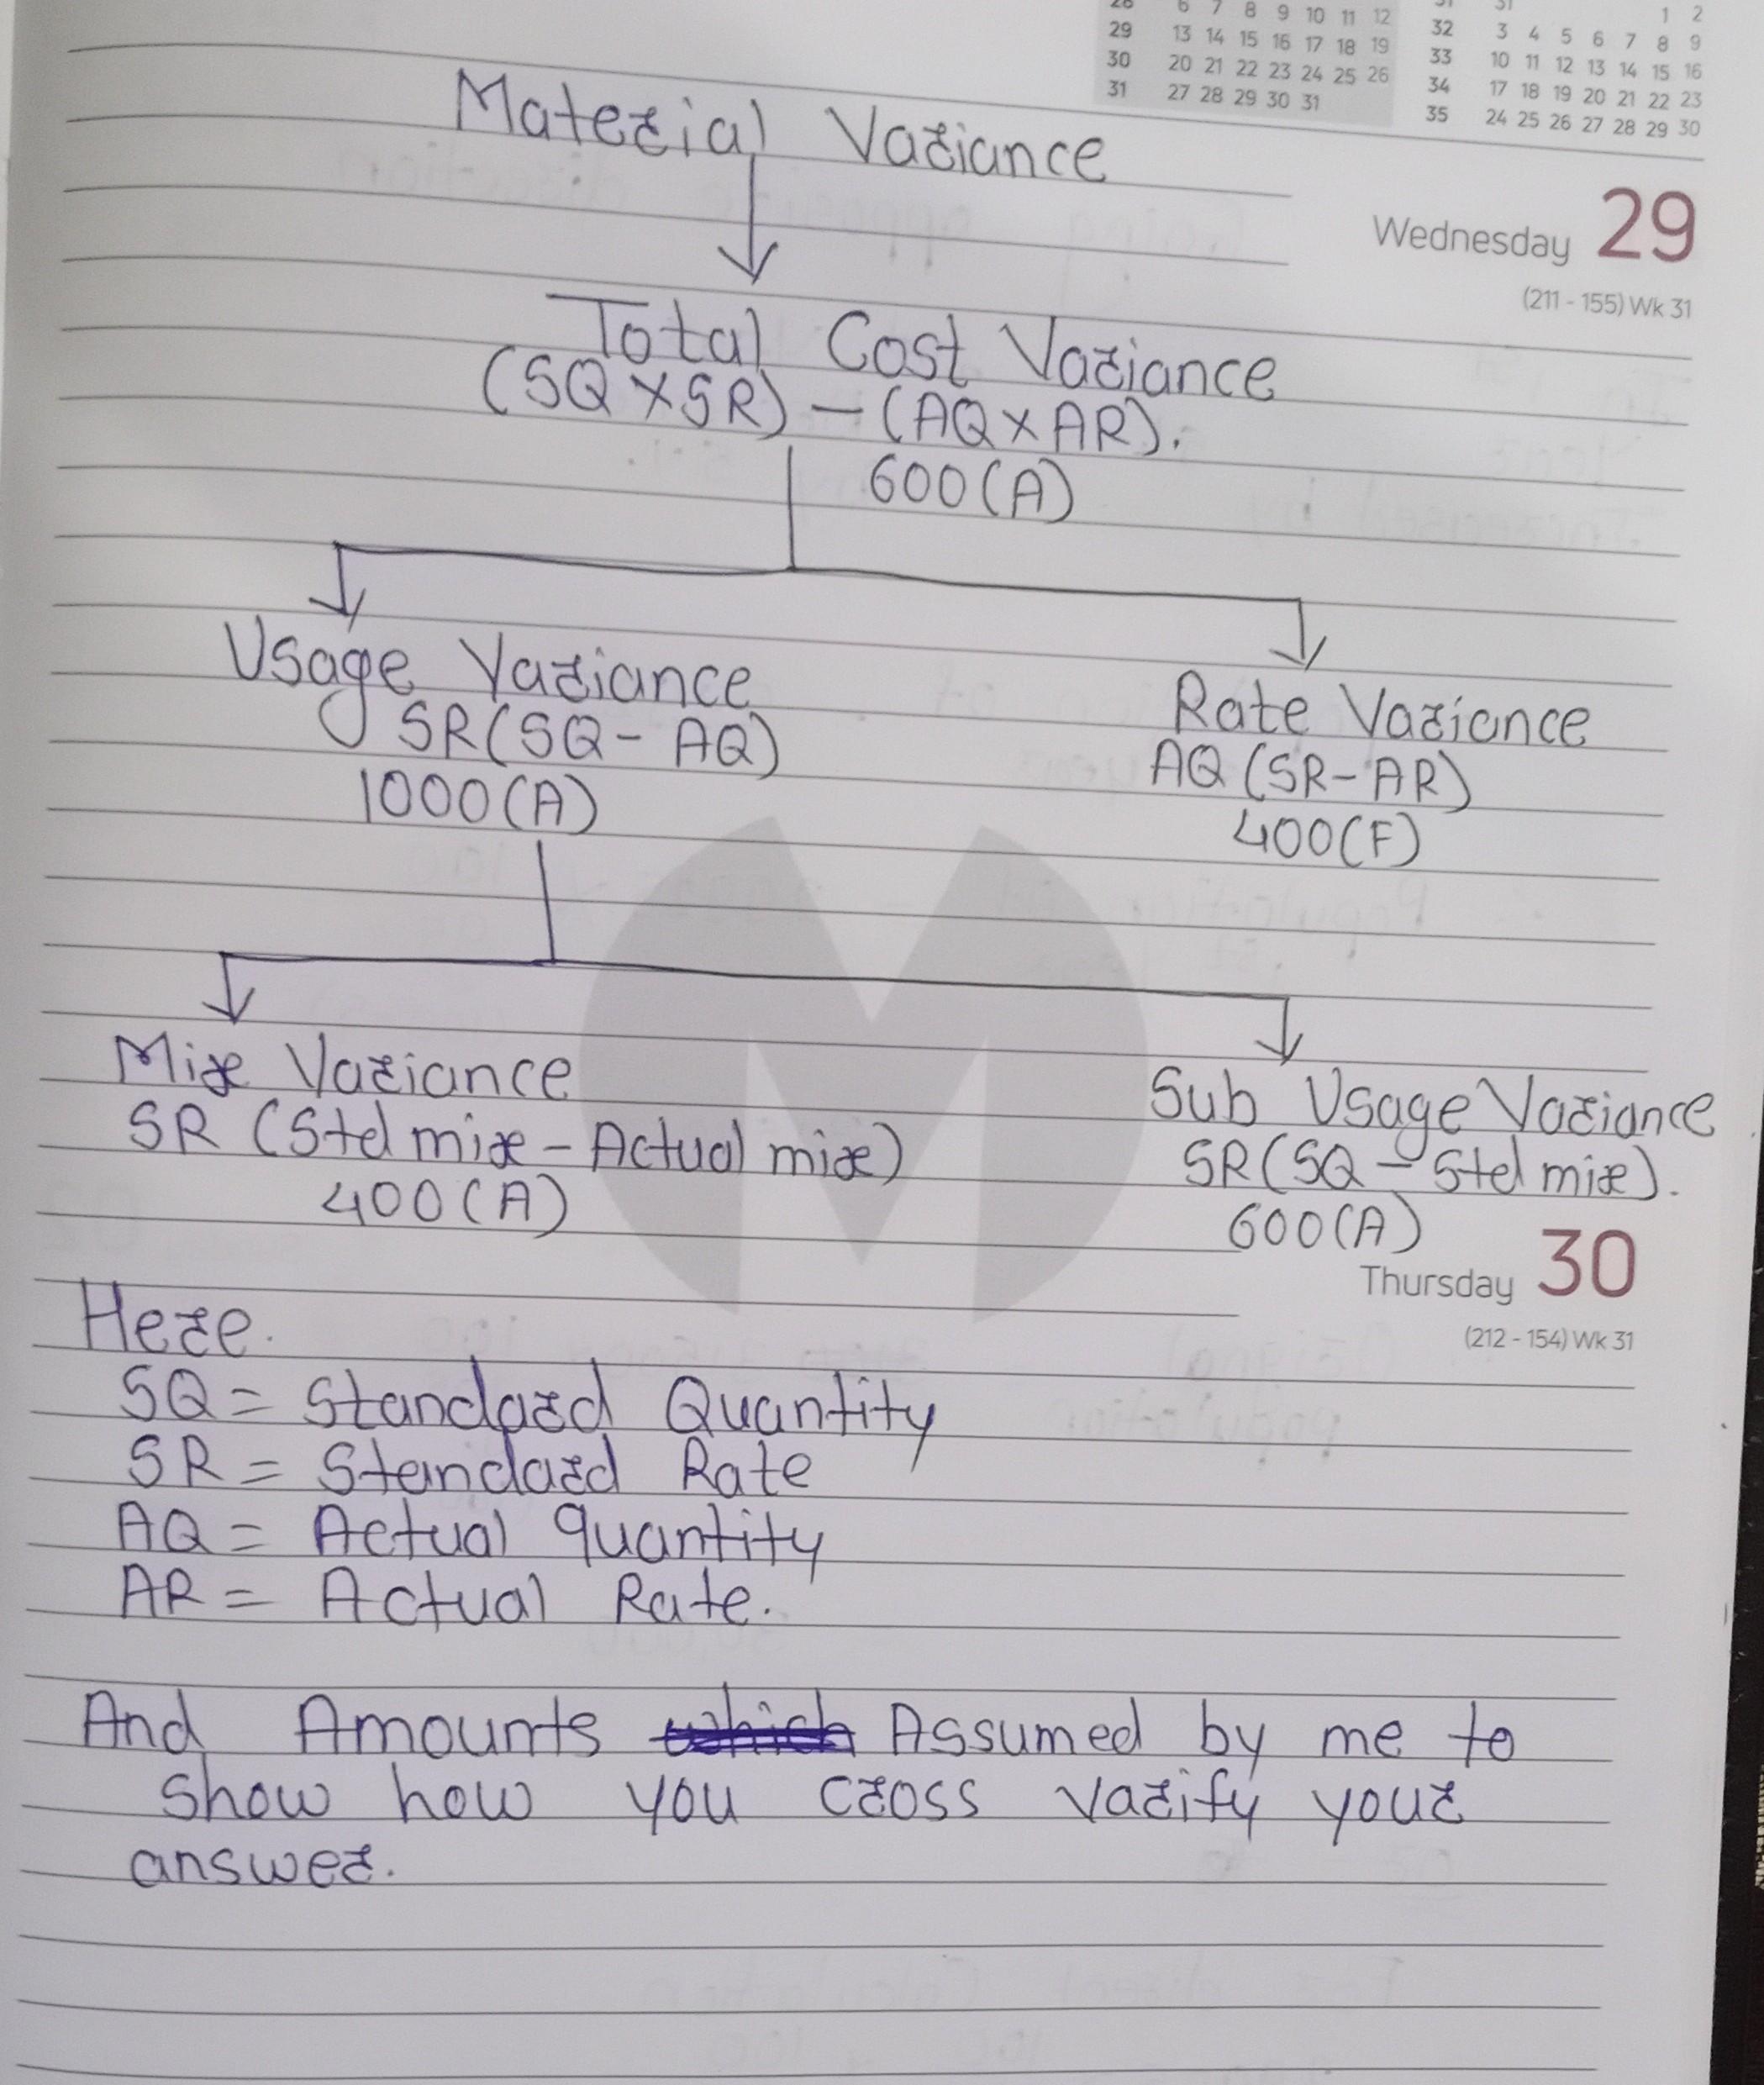 28 6 7 8 9 10 11 12
29 13 14 15 16 17 18 19
30 20 21 22 23 24 25 26
31 27 28 29 30 31
31 31 1 2
32 3 4 5 6 7 8 9
33 10 11 12 13 14 15 16
34 17 18 19 20 21 22 23
35 24 25 26 27 28 29 30
Material Variance
Wednesday 29
(211 - 155) Wk 31
Total Cost Variance
(SQ X SR) - (AQ X AR).
600 (A)
Usage Variance
SR (SQ - AQ)
1000 (A)
Rate Variance
AQ (SR - AR)
400 (F)
Mix Variance
SR (Std mix - Actual mix)
400 (A)
Sub Usage Variance
SR (SQ - Std mix).
600 (A)
Thursday 30
(212 - 154) Wk 31
Here.
SQ = Standard Quantity
SR = Standard Rate
AQ = Actual quantity
AR = Actual Rate.
And Amounts which Assumed by me to
show how you cross varify your
answer.